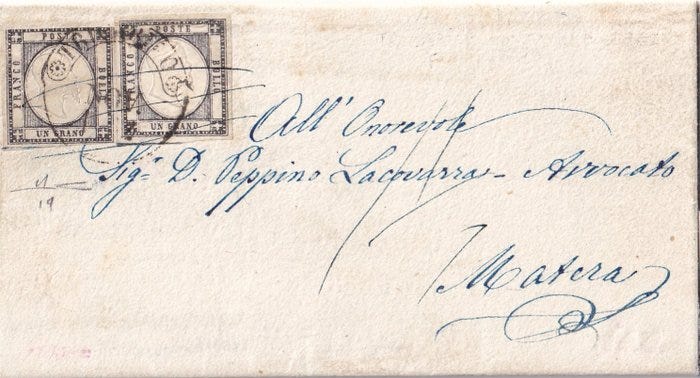 FRANCO POSTE BOLLO
UN GRANO
FRANCO POSTE BOLLO
UN GRANO
All' Onorevole
Sig.r D. Peppino Lacovazza - Avvocato
Matera
19